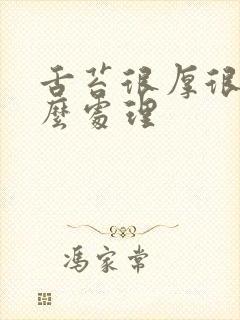 舌苔很厚很
麼處理
馮家常